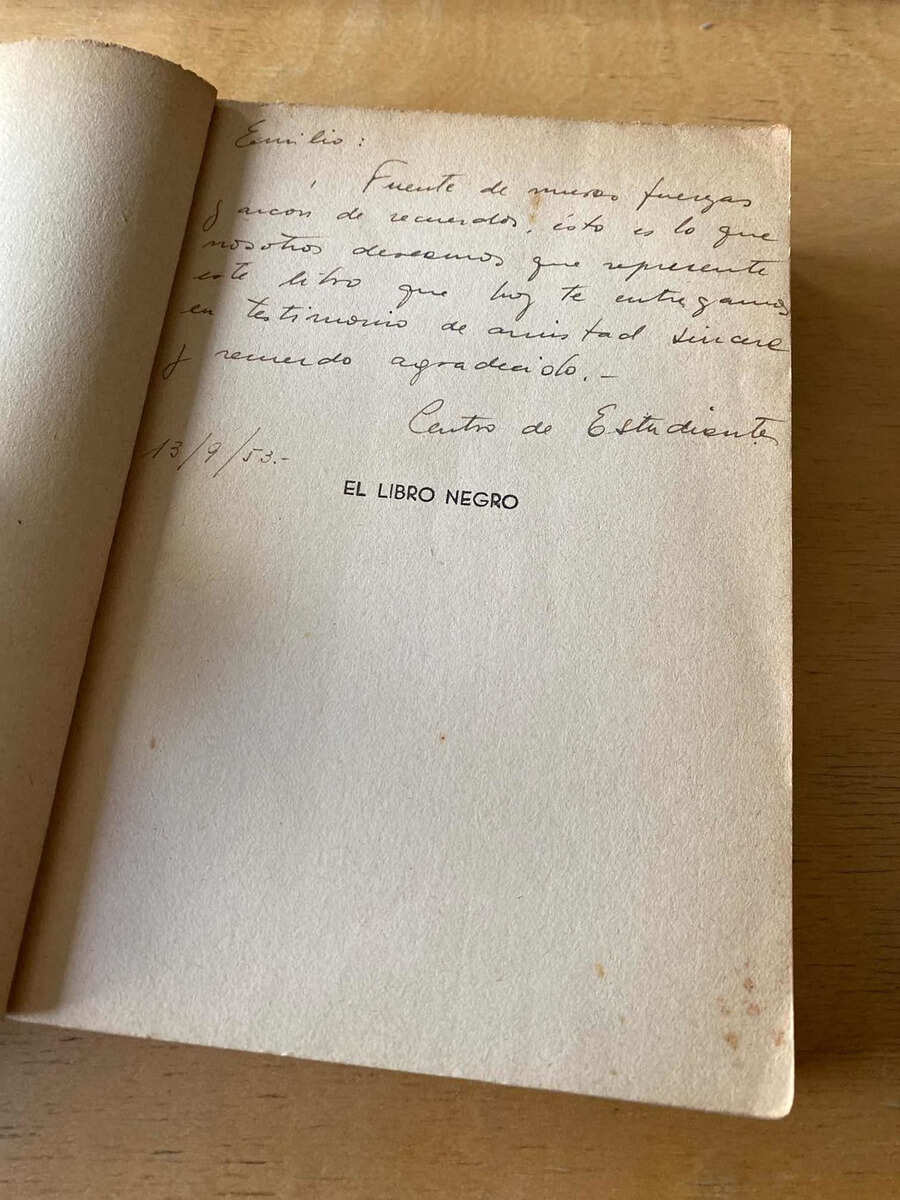 Emilio:
Fuente de nuevas fuerzas
y arcón de recuerdos, ésto es lo que
nosotros deseamos que represente
este libro que hoy te entregamos
en testimonio de amistad sincera
y recuerdo agradecido.-
Centro de Estudiantes
13/9/53.-
EL LIBRO NEGRO